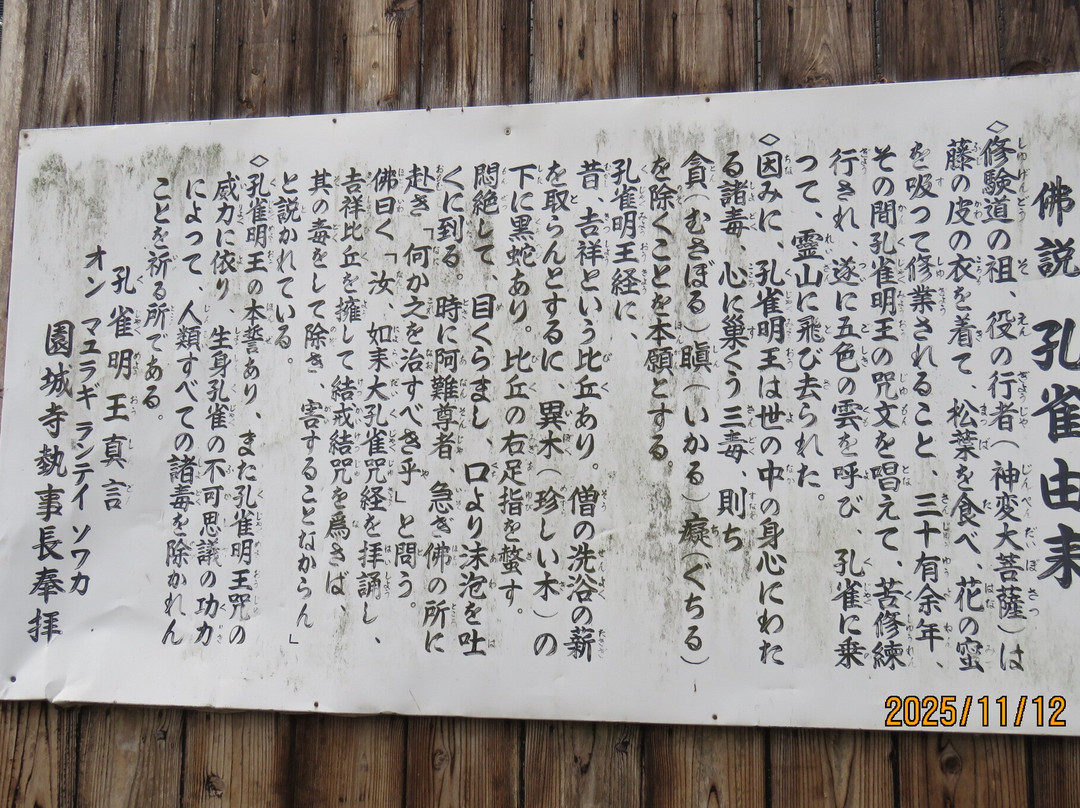 佛説 孔雀由来
◇修験道の祖、役の行者（神変大菩薩）は
藤の皮の衣を着て、松葉を食べ、花の蜜
を吸って修業されること、三十有余年、
その間孔雀明王の咒文を唱えて、苦修練
行され、遂に五色の雲を呼び、孔雀に乗
って、霊山に飛び去られた。
◇因みに、孔雀明王は世の中の身心にわた
る諸毒、心に巣くう三毒、則ち
貪（むさぼる）瞋（いかる）癡（ぐちる）
を除くことを本願とする。
孔雀明王経に、
昔、吉祥という比丘あり。僧の洗浴の薪
を取らんとするに、異木（珍しい木）の
下に黒蛇あり。比丘の右足指を螫す。
悶絶して、目くらまし、口より沫泡を吐
くに到る。時に阿難尊者、急ぎ佛の所に
赴き「何か之を治すべき乎」と問う。
佛曰く「汝、如来大孔雀咒経を拝誦し、
吉祥比丘を擁して結戒結咒を為さば、
其の毒をして除き、害することなからん」
と説かれている。
◇孔雀明王の本誓あり、また孔雀明王咒の
威力に依り、生身孔雀の不可思議の功力
によって、人類すべての諸毒を除かれん
ことを祈る所である。
孔雀明王真言
オン マユラギ ランテイ ソワカ
園城寺執事長奉拝
2025/11/12